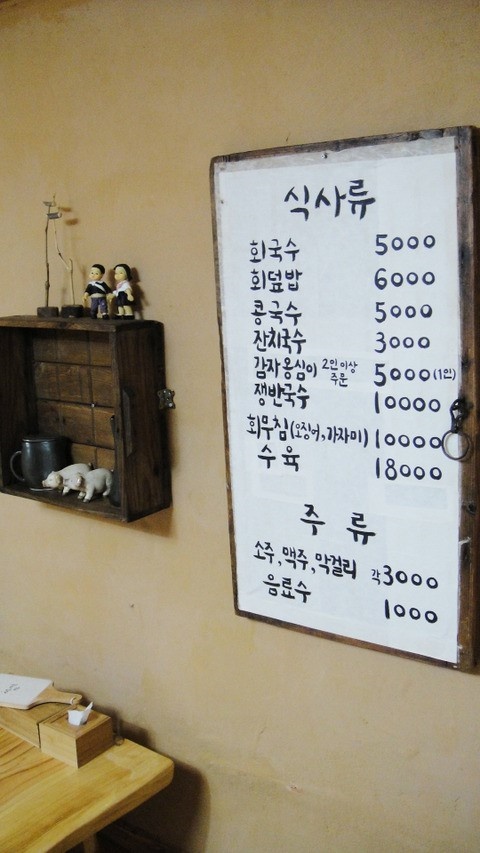 식사류
회국수 5000
회덮밥 6000
콩국수 5000
잔치국수 3000
감자옹심이 2인이상 주문 5000(1인)
쟁반국수 10000
회무침(오징어,가자미) 10000
수육 18000
주류
소주,맥주,막걸리 각3000
음료수 1000